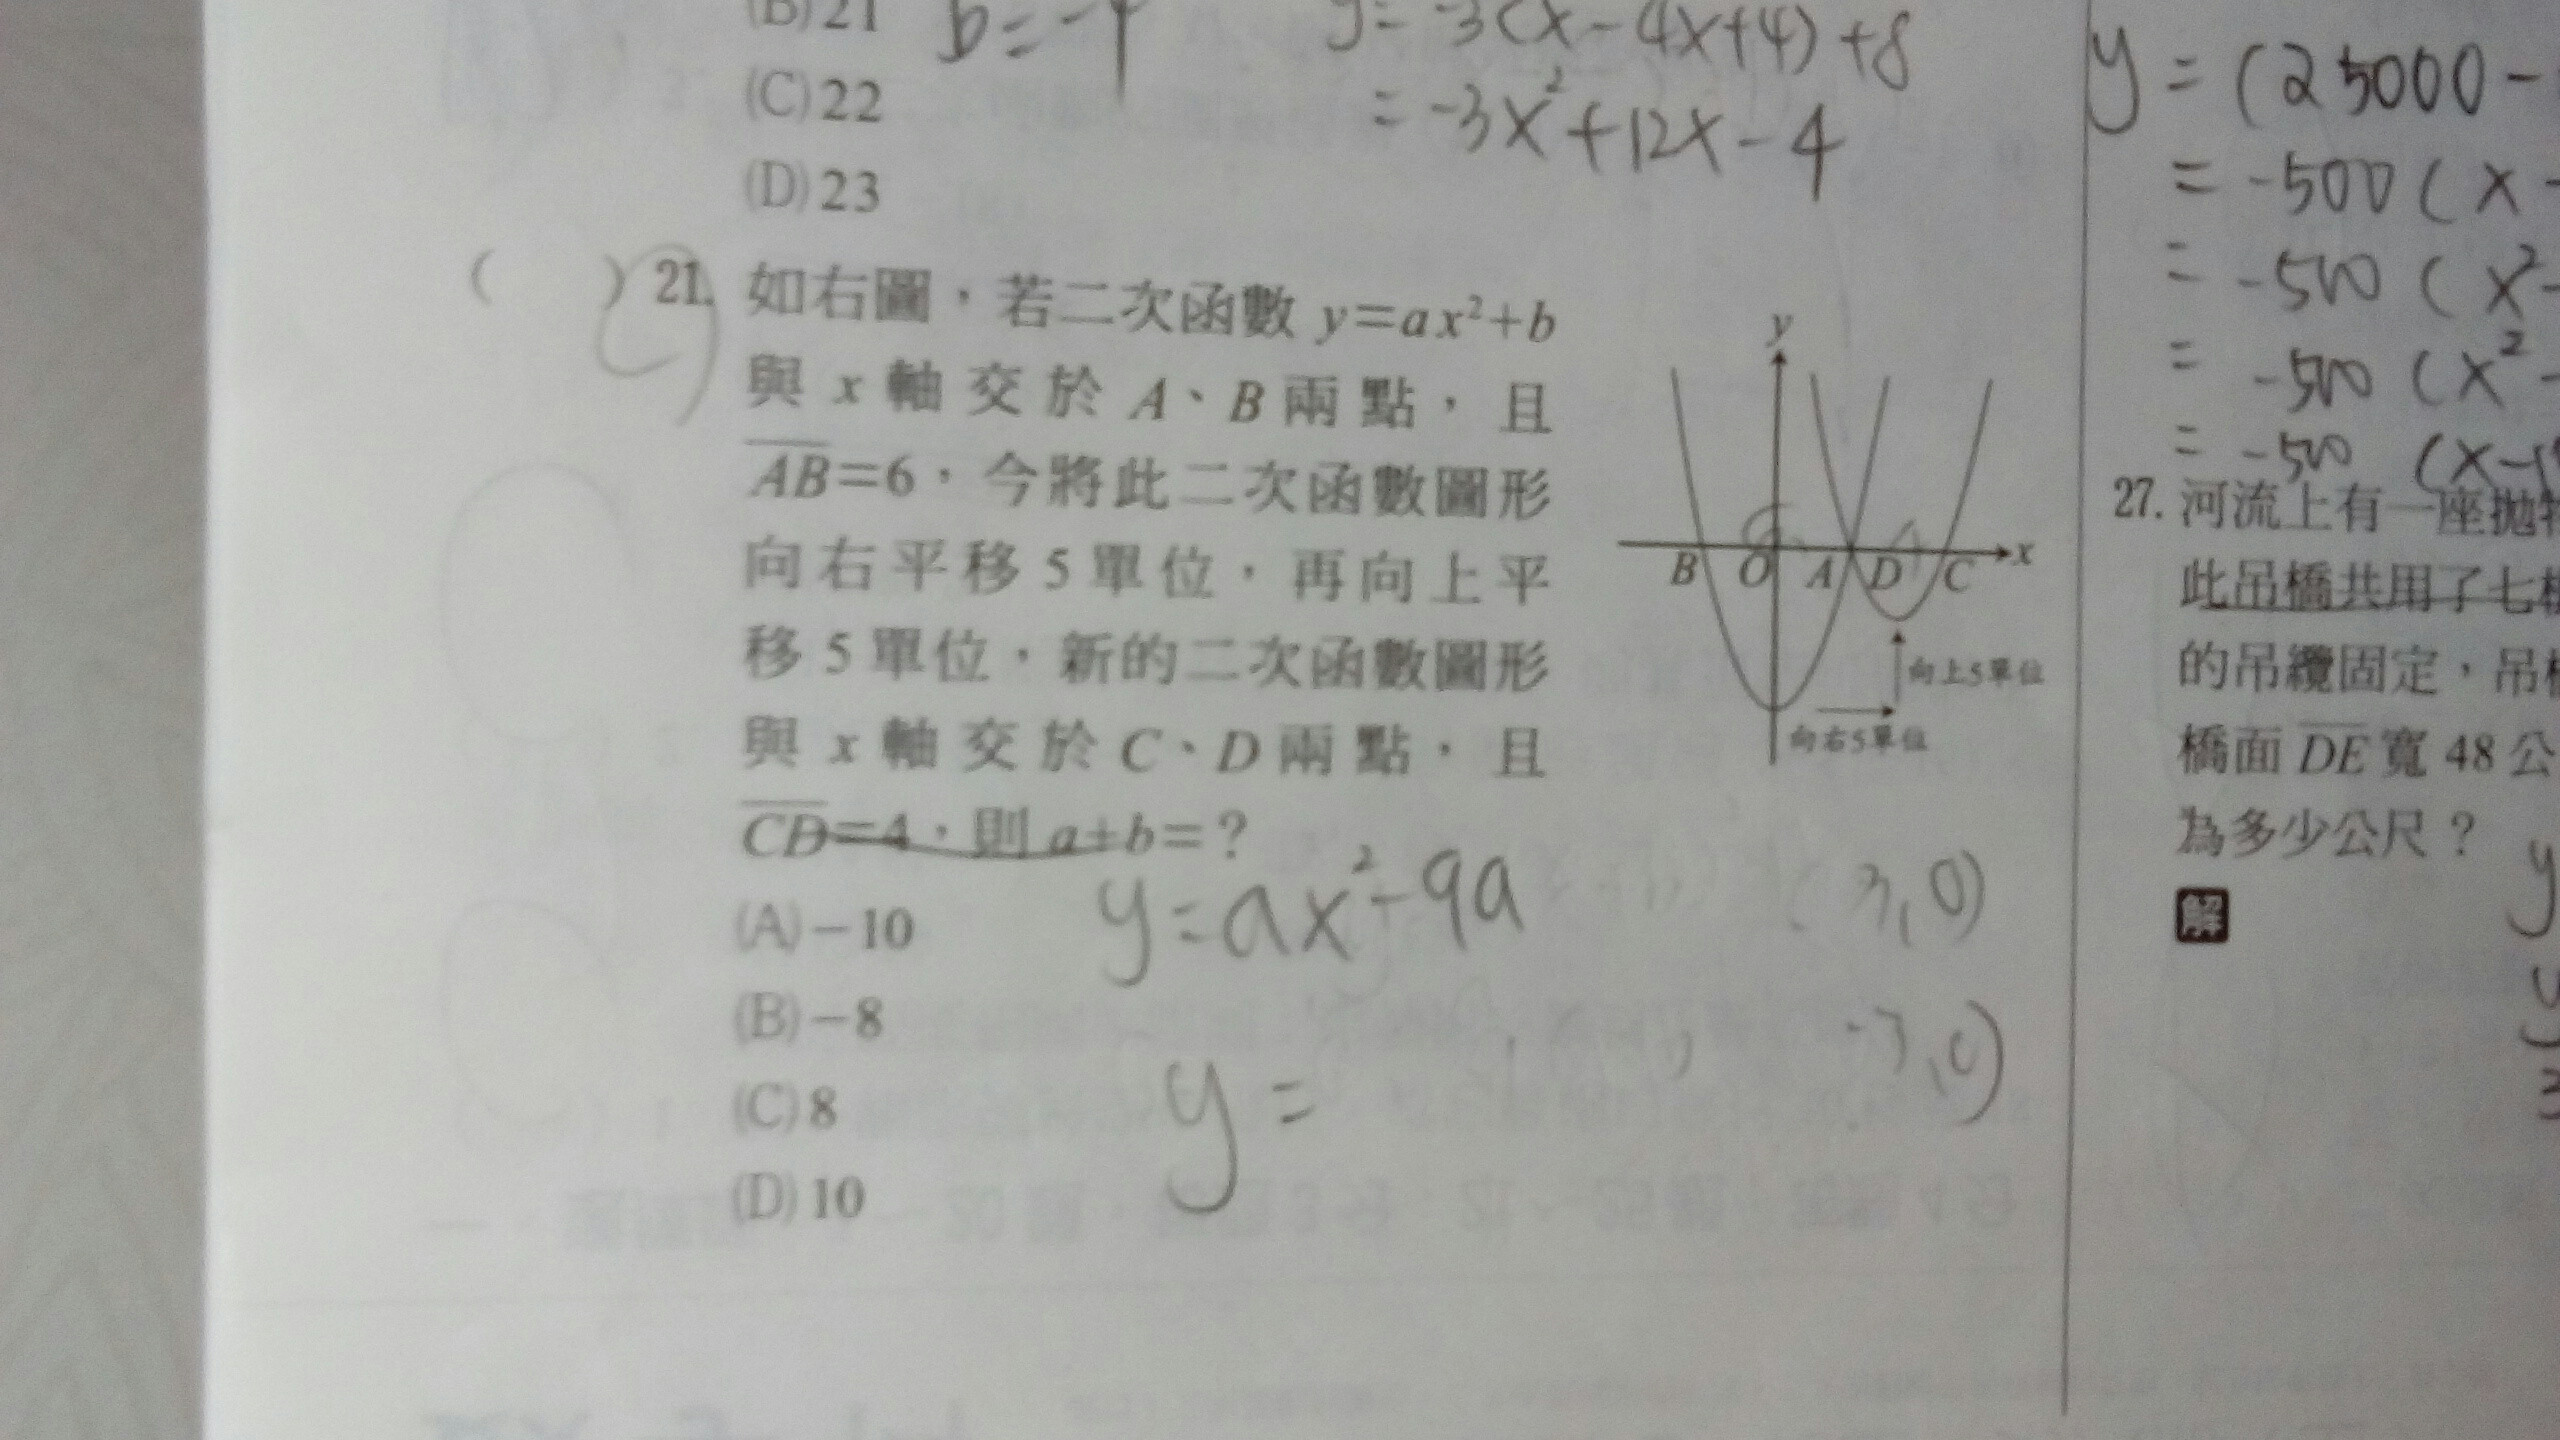 (B)21
b=-4
y=-3(x-4x+4)+8
(C)22
=-3x²+12x-4
(D)23
( )21. 如右圖，若二次函數 y=ax²+b
與 x 軸交於 A、B 兩點，且
AB=6，今將此二次函數圖形
向右平移 5 單位，再向上平
移 5 單位，新的二次函數圖形
與 x 軸交於 C、D 兩點，且
CD=4，則 a+b=？
(A)-10
(B)-8
(C)8
(D)10
y
B O A D C x
向上5單位
向右5單位
y=ax²-9a
3,0)
-3,0)
y=
y=(25000-
=-500(x-
=-500(x²-
=-500(x²-
=-500(x-
27. 河流上有一座拋物
此吊橋共用了七根
的吊纜固定，吊橋
橋面 DE 寬 48 公
為多少公尺？
解
y